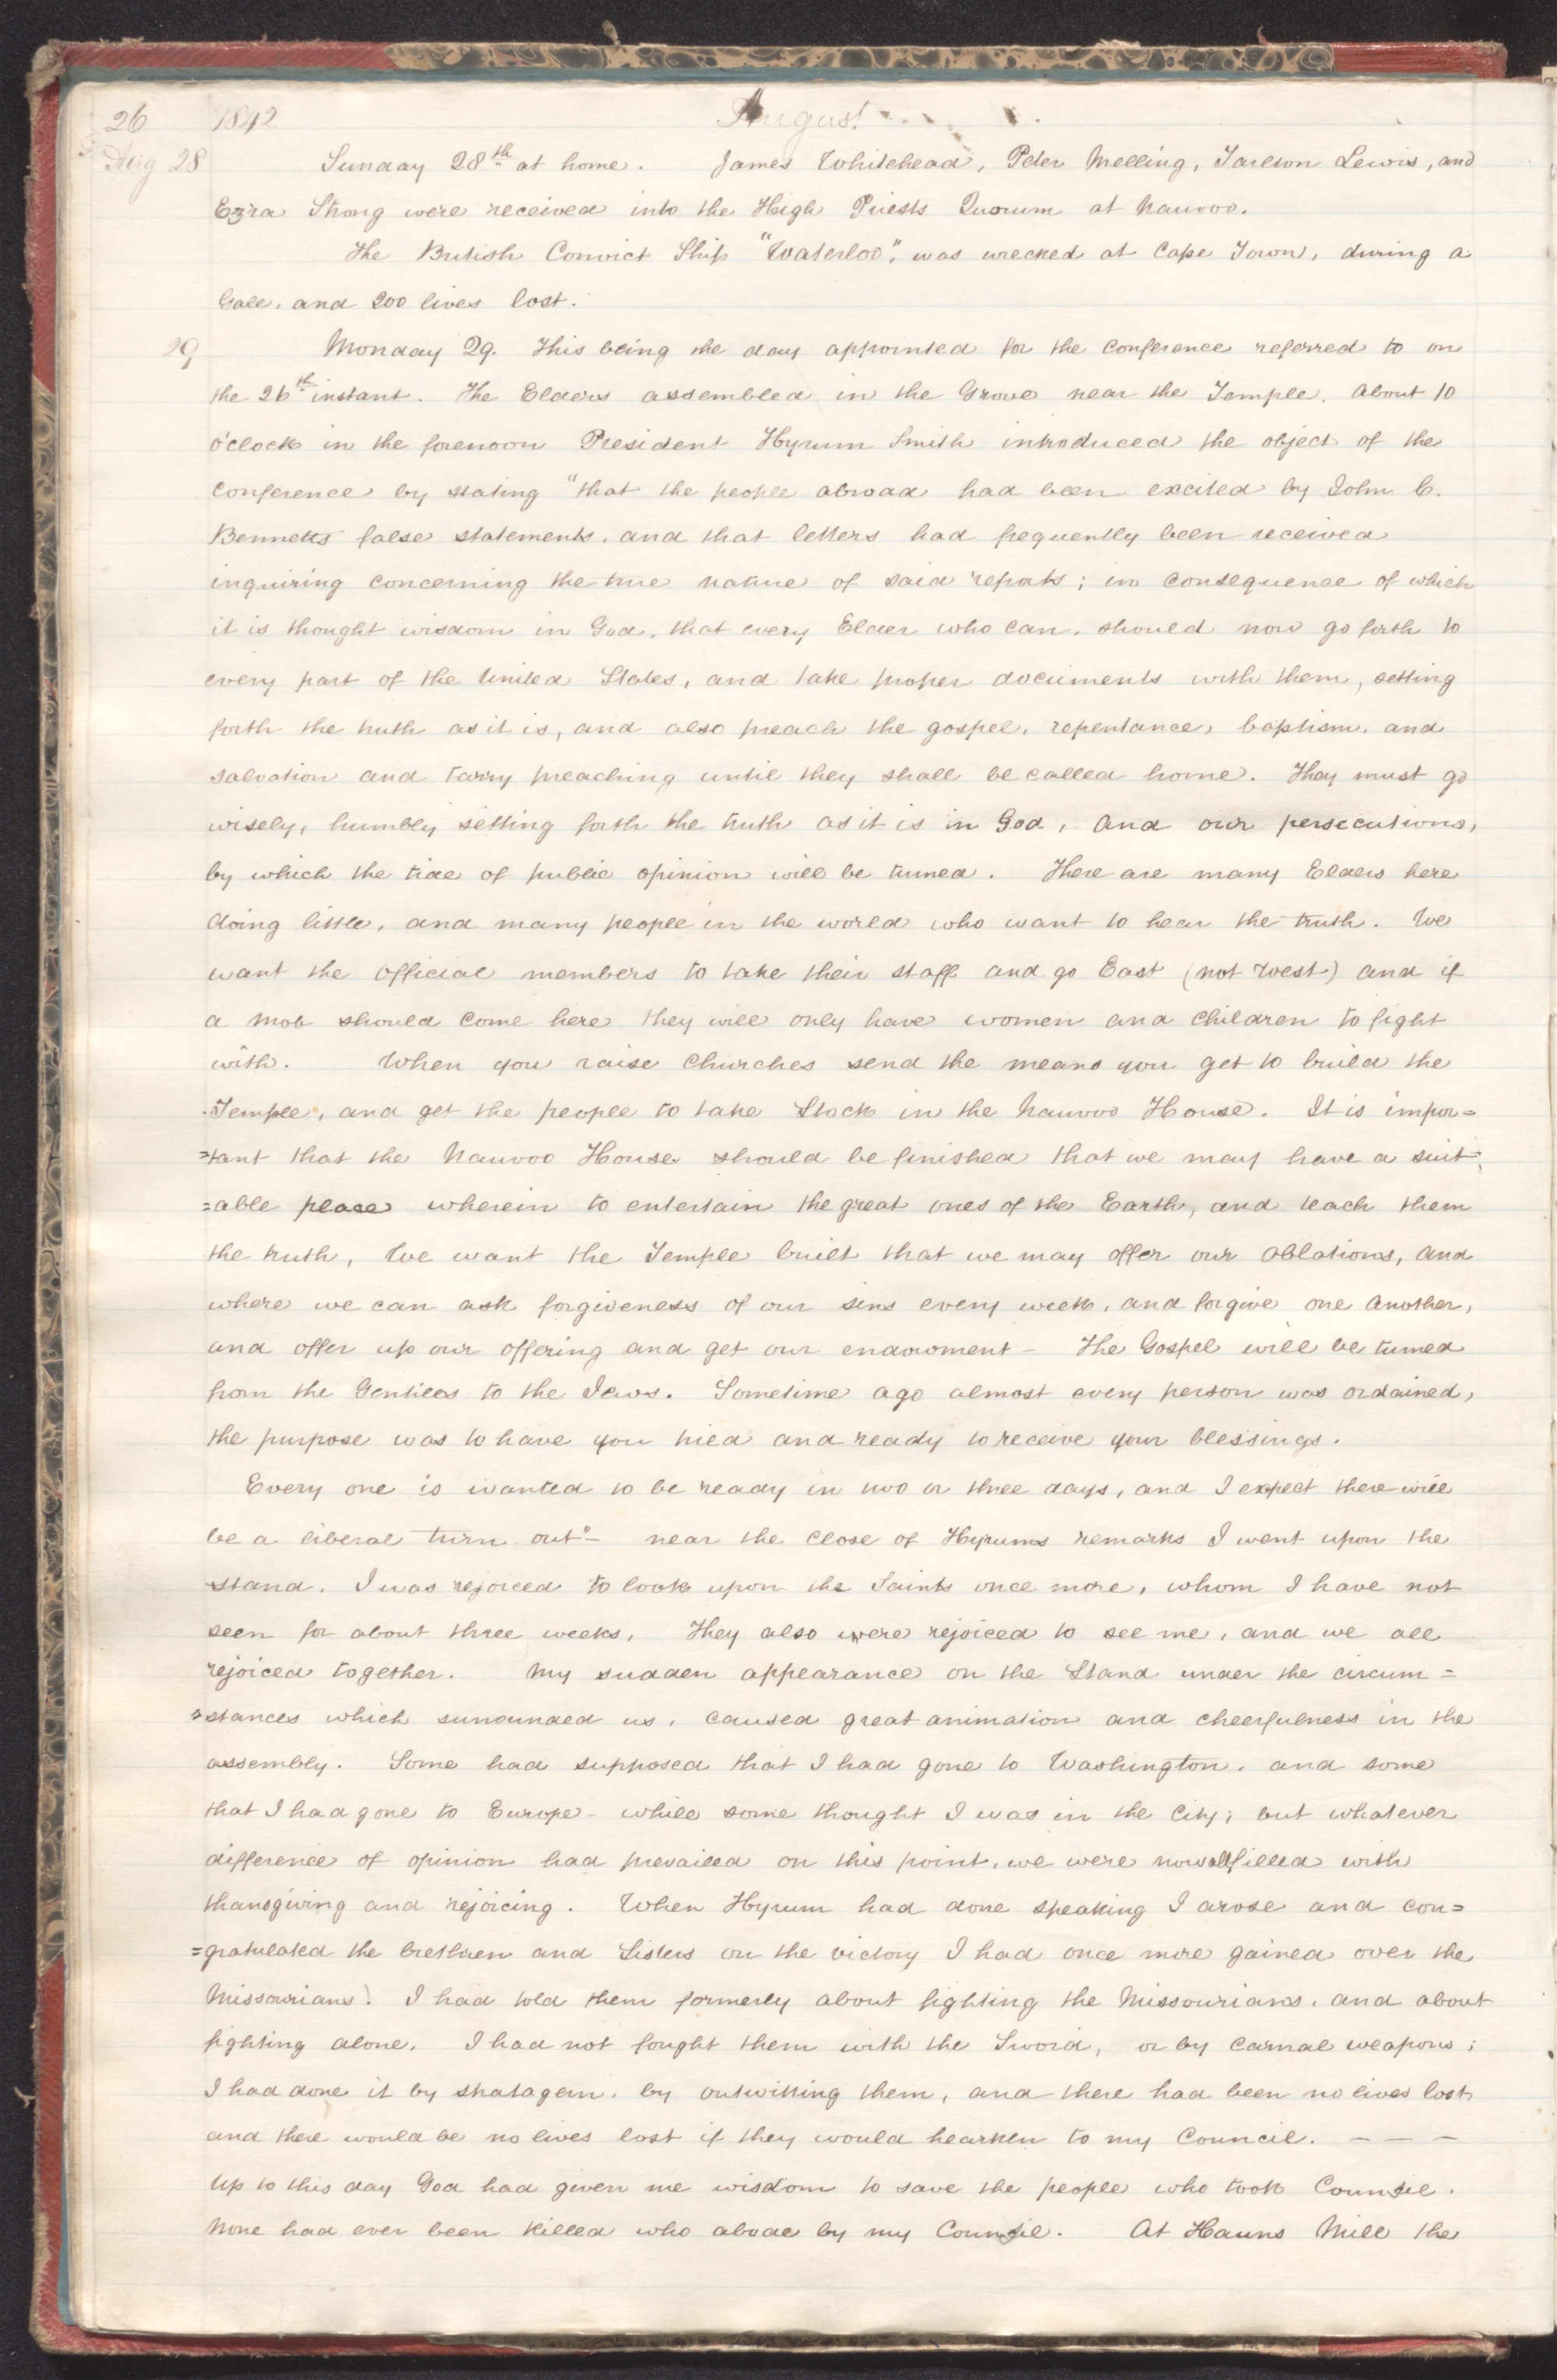 26 1842 August
Aug 28 Sunday 28th at home. James Whitehead, Peter Melling, Tarlton Lewis, and
Ezra Strong were received into the High Priests Quorum at Nauvoo.
The British Convict Ship "Waterloo", was wrecked at Cape Town, during a
Gale, and 200 lives lost.
29 Monday 29. This being the day appointed for the conference referred to on
the 26th instant. The Elders assembled in the Grove near the Temple. About 10
o'clock in the forenoon President Hyrum Smith introduced the object of the
conference by stating "that the people abroad had been excited by John C.
Bennetts false statements, and that letters had frequently been received
inquiring concerning the true nature of said reports; in consequence of which
it is thought wisdom in God, that every Elder who can, should now go forth to
every part of the United States, and take proper documents with them, setting
forth the truth as it is, and also preach the gospel, repentance, baptism, and
salvation and tarry preaching until they shall be called home. They must go
wisely, humbly setting forth the truth as it is in God, and our persecutions,
by which the tide of public opinion will be turned. There are many Elders here
doing little, and many people in the world who want to hear the truth. We
want the official members to take their staff and go East (not West) and if
a mob should come here they will only have women and children to fight
with. When you raise Churches send the means you get to build the
Temple, and get the people to take Stock in the Nauvoo House. It is impor=
=tant that the Nauvoo House should be finished that we may have a suit=
=able place wherein to entertain the great ones of the Earth, and teach them
the truth, We want the Temple built that we may offer our oblations, and
where we can ask forgiveness of our sins every week, and forgive one another,
and offer up our offering and get our endowment - The Gospel will be turned
from the Gentiles to the Jews. Sometime ago almost every person was ordained,
the purpose was to have you tried and ready to receive your blessings.
Every one is wanted to be ready in two or three days, and I expect there will
be a liberal turn out"- near the close of Hyrums remarks I went upon the
stand. I was rejoiced to look upon the Saints once more, whom I have not
seen for about three weeks, They also were rejoiced to see me, and we all
rejoiced together. My sudden appearance on the Stand under the circum=
=stances which surrounded us, caused great animation and cheerfulness in the
assembly. Some had supposed that I had gone to Washington, and some
that I had gone to Europe - while some thought I was in the City; but whatever
difference of opinion had prevailed on this point, we were now all filled with
thansgiving and rejoicing. When Hyrum had done speaking I arose and con=
=gratulated the brethren and Sisters on the victory I had once more gained over the
Missourians. I had told them formerly about fighting the Missourians, and about
fighting alone. I had not fought them with the Sword, or by carnal weapons;
I had done it by stratagem, by outwitting them, and there had been no lives lost,
and there would be no lives lost if they would hearken to my Council. - - -
Up to this day God had given me wisdom to save the people who took Counsil.
None had ever been killed who abode by my Counsil. At Hauns Mill the